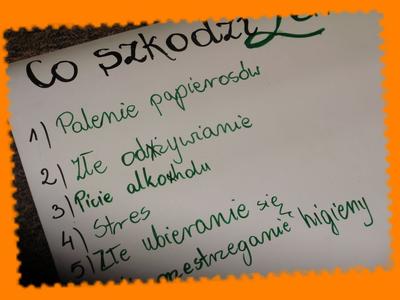 Co szkodzi
1) Palenie papierosów
2) Złe odżywianie
3) Picie alkoholu
4) Stres
5) Złe ubieranie się
higieny